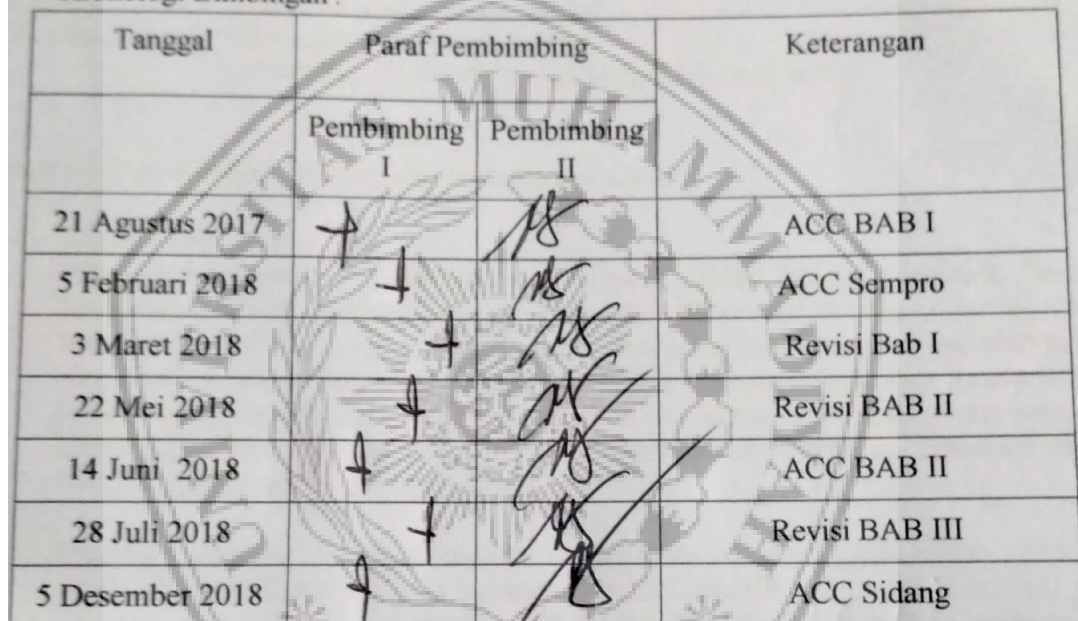 Tanggal Paraf Pembimbing Keterangan
Pembimbing I Pembimbing II
21 Agustus 2017 ACC BAB I
5 Februari 2018 ACC Sempro
3 Maret 2018 Revisi Bab I
22 Mei 2018 Revisi BAB II
14 Juni 2018 ACC BAB II
28 Juli 2018 Revisi BAB III
5 Desember 2018 ACC Sidang
UNIVERSITAS MUHAMMADIYAH